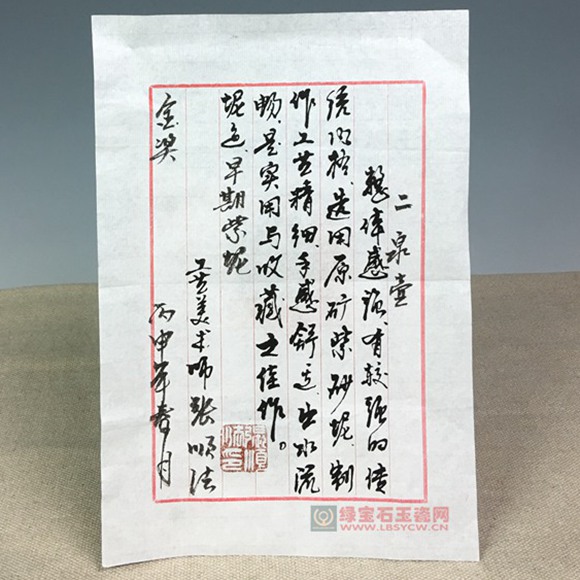 二泉壶
整体感强、有较强的传
统风格、选用原矿紫砂坭、制
作工艺精细、手感舒适、出水流
畅、是实用与收藏之佳作。
坭色、早期紫坭
美术师张顺法
金奖 丙申年春月
绿宝石玉瓷网
WWW.LBSYCW.CN